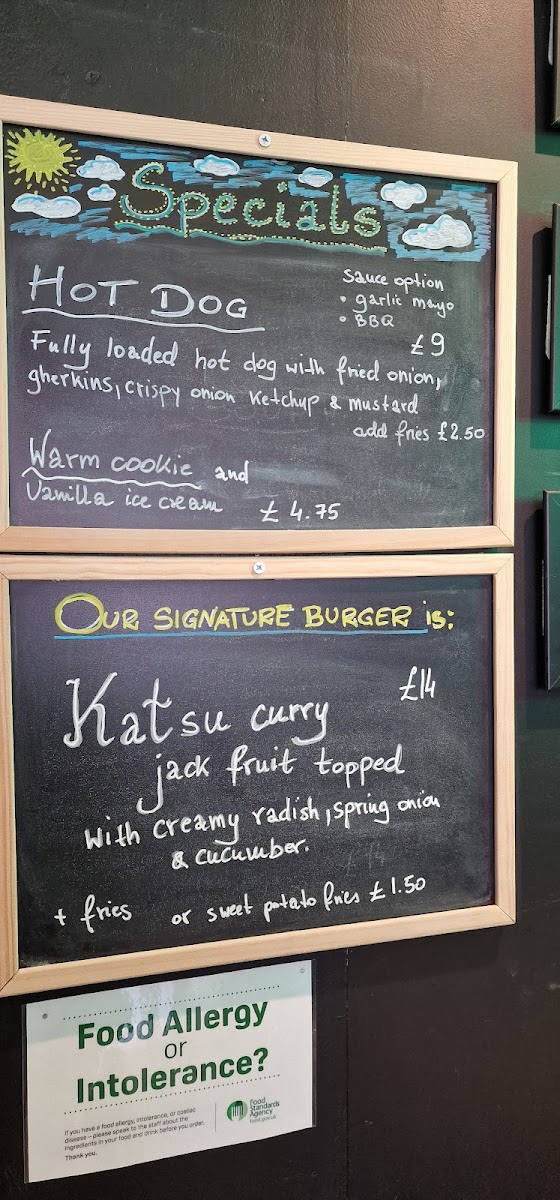 Specials
HOT DOG
Sauce option
• garlic mayo
• BBQ
£9
Fully loaded hot dog with fried onion,
gherkins, crispy onion ketchup & mustard
add fries £2.50
Warm cookie and
Vanilla ice cream £4.75
OUR SIGNATURE BURGER is:
£14
Katsu curry
jack fruit topped
with creamy radish, spring onion
& cucumber.
+ fries or sweet potato fries £1.50
Food Allergy
or
Intolerance?
If you have a food allergy, intolerance, or coeliac
disease – please speak to the staff about the
ingredients in your food and drink before you order.
Thank you.
Food
Standards
Agency
food.gov.uk